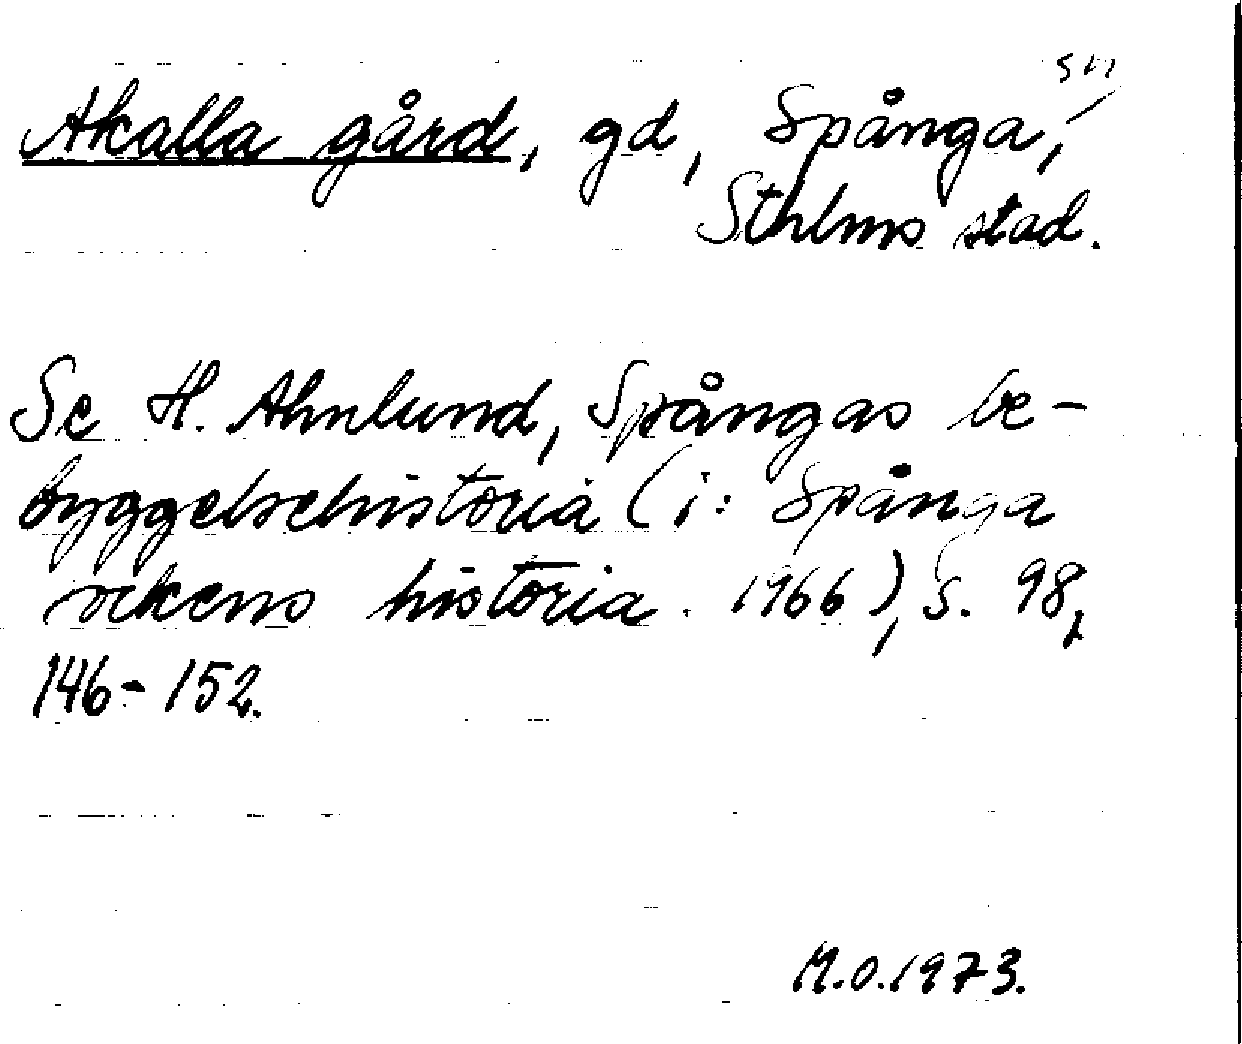 Akalla gård, gd, Spånga sn,
Sthlms stad.
Se H. Ahnlund, Spångas be-
byggelsehistoria (i: Spånga
sockens historia. 1966), s. 98,
146-152.
M.O.1973.